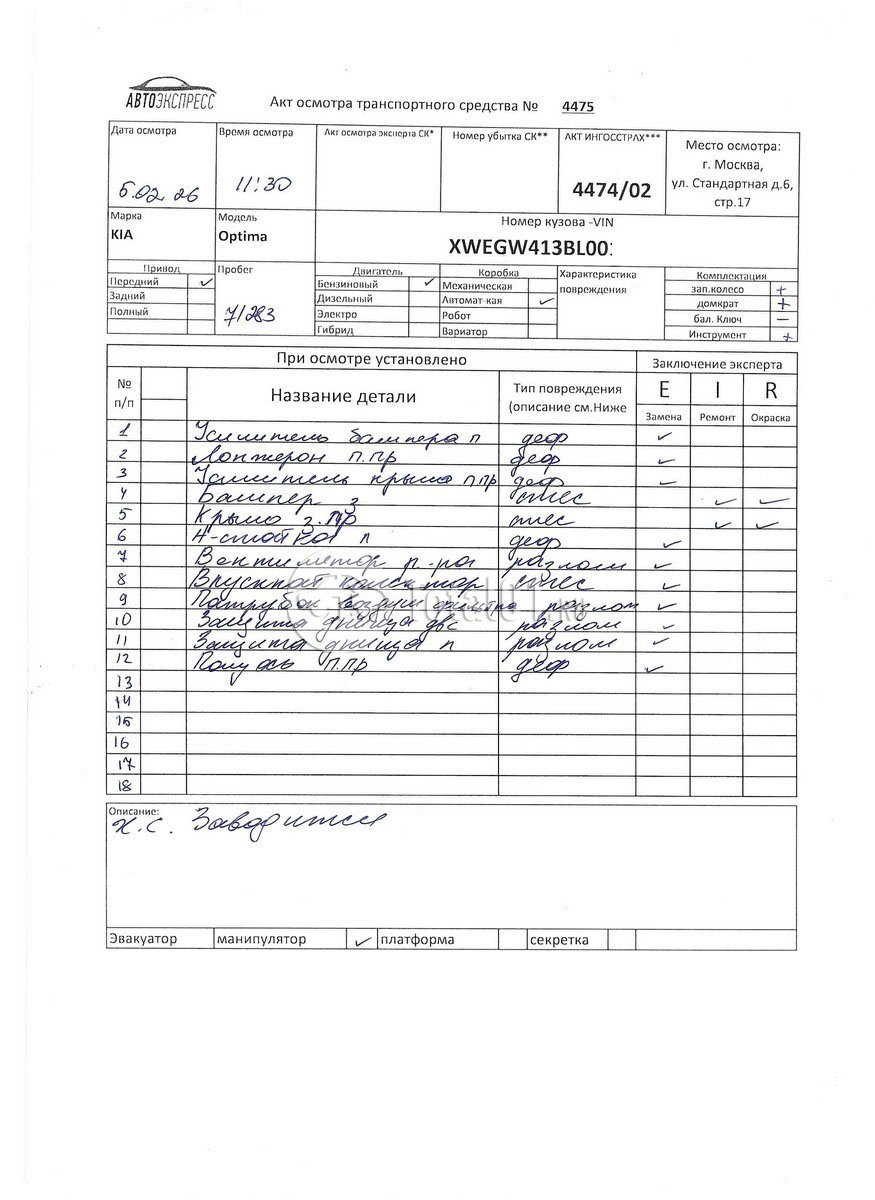 АВТОЭКСПРЕСС
Акт осмотра транспортного средства № 4475
Дата осмотра
Время осмотра
Акт осмотра эксперта СК*
Номер убытка СК**
АКТ ИНГОССТРАХ***
Место осмотра:
г. Москва,
ул. Стандартная д.6,
стр.17
5.02.26
11:30
4474/02
Марка
Модель
Номер кузова -VIN
KIA
Optima
XWEGW413BL00:
Привод
Пробег
Двигатель
Коробка
Характеристика
повреждения
Комплектация
Передний ✓
Бензиновый ✓
Механическая
зап.колесо +
Задний
Дизельный
Автомат-кая ✓
домкрат +
Полный
71283
Электро
Робот
бал. Ключ —
Гибрид
Вариатор
Инструмент +
При осмотре установлено
Заключение эксперта
№
п/п
Название детали
Тип повреждения
(описание см.Ниже
E I R
Замена Ремонт Окраска
1 Усилитель бампера п деф ✓
2 Лонжерон п.пр деф ✓
3 Усилитель крыло п пр деф ✓
4 Бампер з ✓ ✓
5 Крыло з.пр ✓ ✓
6 п деф ✓
7 Вентилятор п. разлом ✓
8 ✓
9 Патрубок разлом ✓
10 Защита днища двс разлом ✓
11 Защита днища п разлом ✓
12 Полуось п.пр деф ✓
13
14
15
16
17
18
Описание:
х.с. Заводится
Эвакуатор манипулятор ✓ платформа секретка